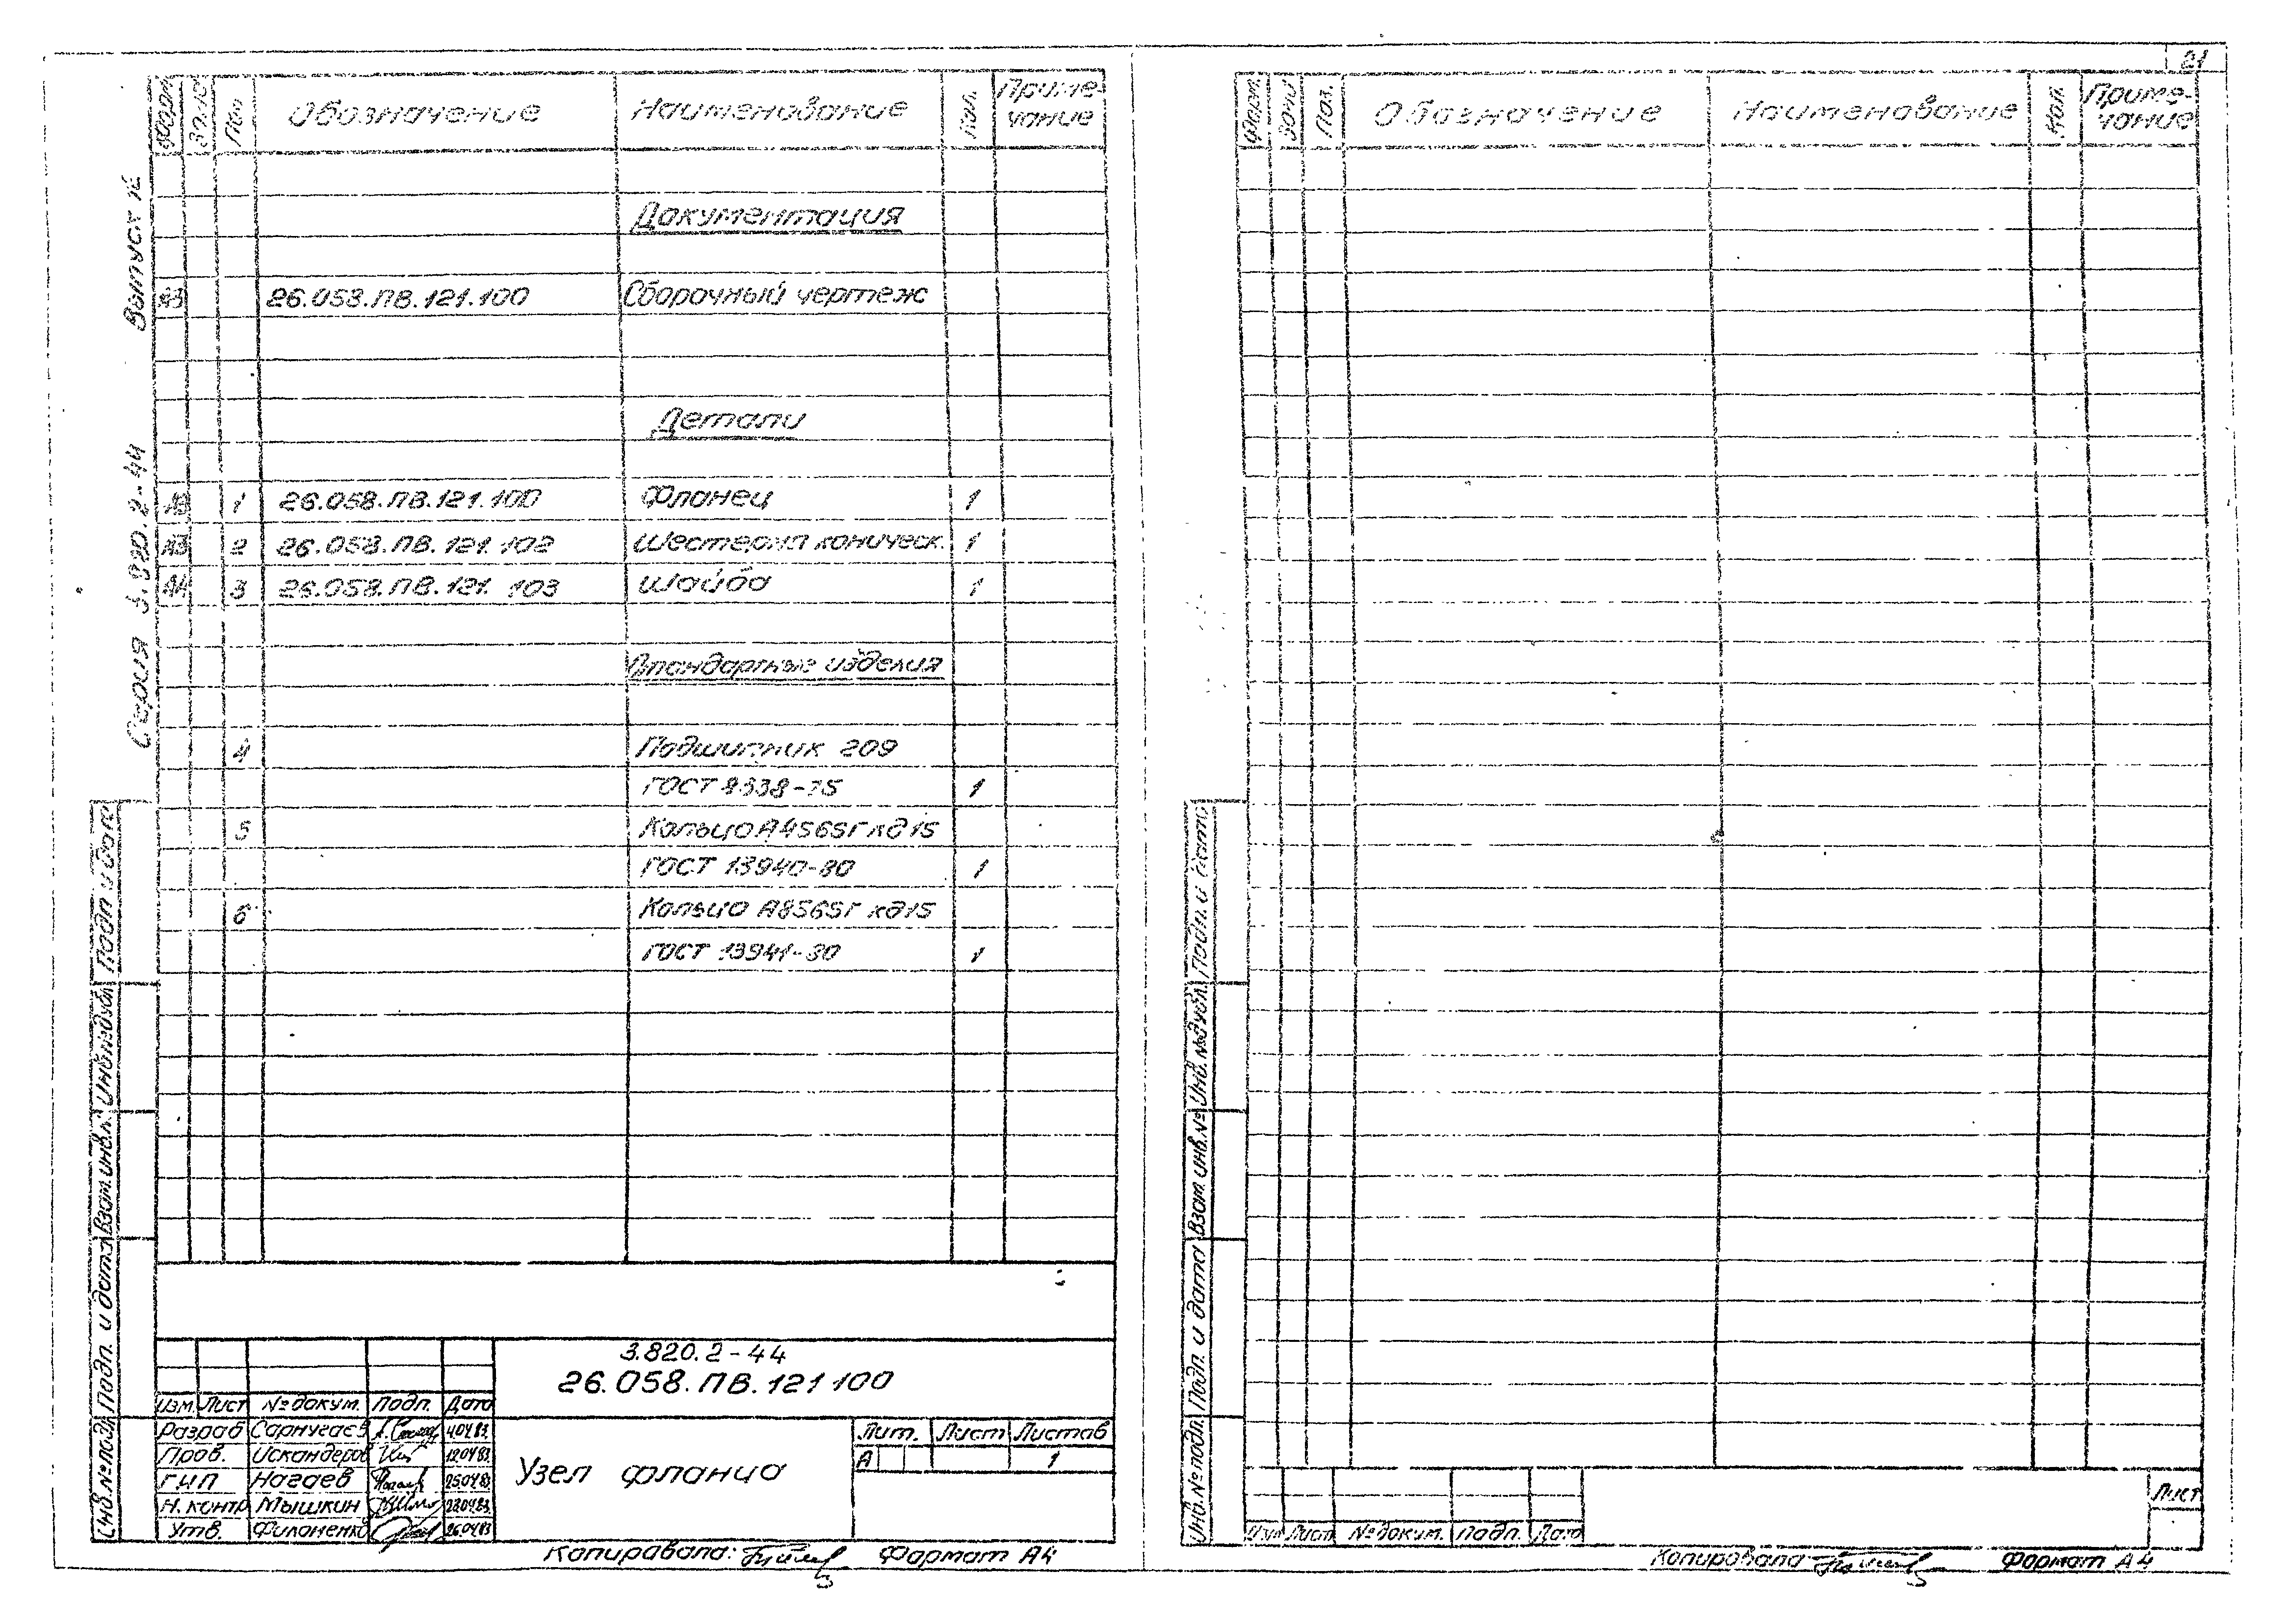 21
Форм. Зона Поз. Обозначение Наименование Кол. Приме-
чание
Документация
А3 26.058.ПВ.121.100 Сборочный чертеж
Детали
А3 1 26.058.ПВ.121.100 Фланец 1
А3 2 26.058.ПВ.121.102 Шестерня коническ. 1
А4 3 26.058.ПВ.121.103 Шайба 1
Стандартные изделия
4 Подшипник 209
ГОСТ 8338-75 1
5 Кольцо А4565Г кд15
ГОСТ 13940-80 1
6 Кольцо А8565Г кд15
ГОСТ 13941-80 1
Серия 3.820.2-44 Выпуск
Инв.№подл. Подп. и дата Взам. инв.№ Инв.№дубл. Подп. и дата
3.820.2-44
26.058.ПВ.121 100
Изм. Лист №докум. Подп. Дата
Разраб Сарнугаев 4.04.83
Пров. Искандеров 12.04.83
ГИП Нагаев 25.04.83
Н.контр Мышкин
Утв. Филоненко 26.04.83
Узел фланца
Лит. Лист Листов
А 1
Копировала: Формат А4
Форм. Зона Поз. Обозначение Наименование Кол. Приме-
чание
Инв.№подл. Подп. и дата Взам. инв.№ Инв.№дубл. Подп. и дата
Изм Лист №докум. Подп. Дата
Лист
Копировала Формат А4